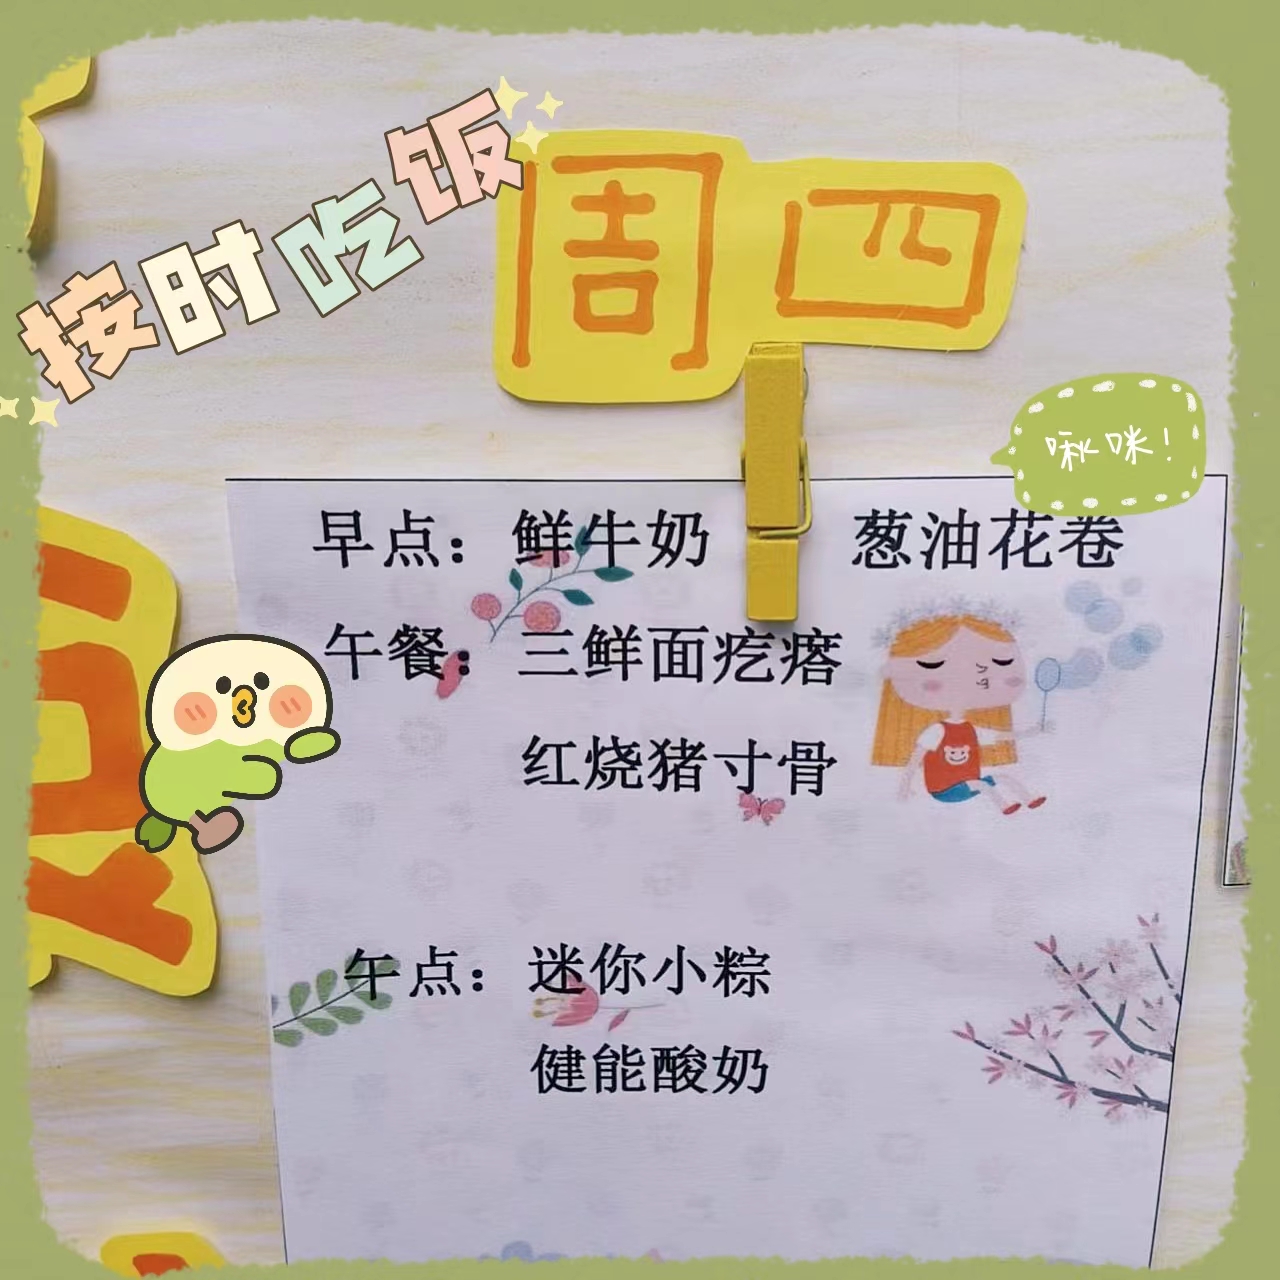 按时吃饭
周四
啾咪！
早点：鲜牛奶 葱油花卷
午餐：三鲜面疙瘩
红烧猪寸骨
午点：迷你小粽
健能酸奶